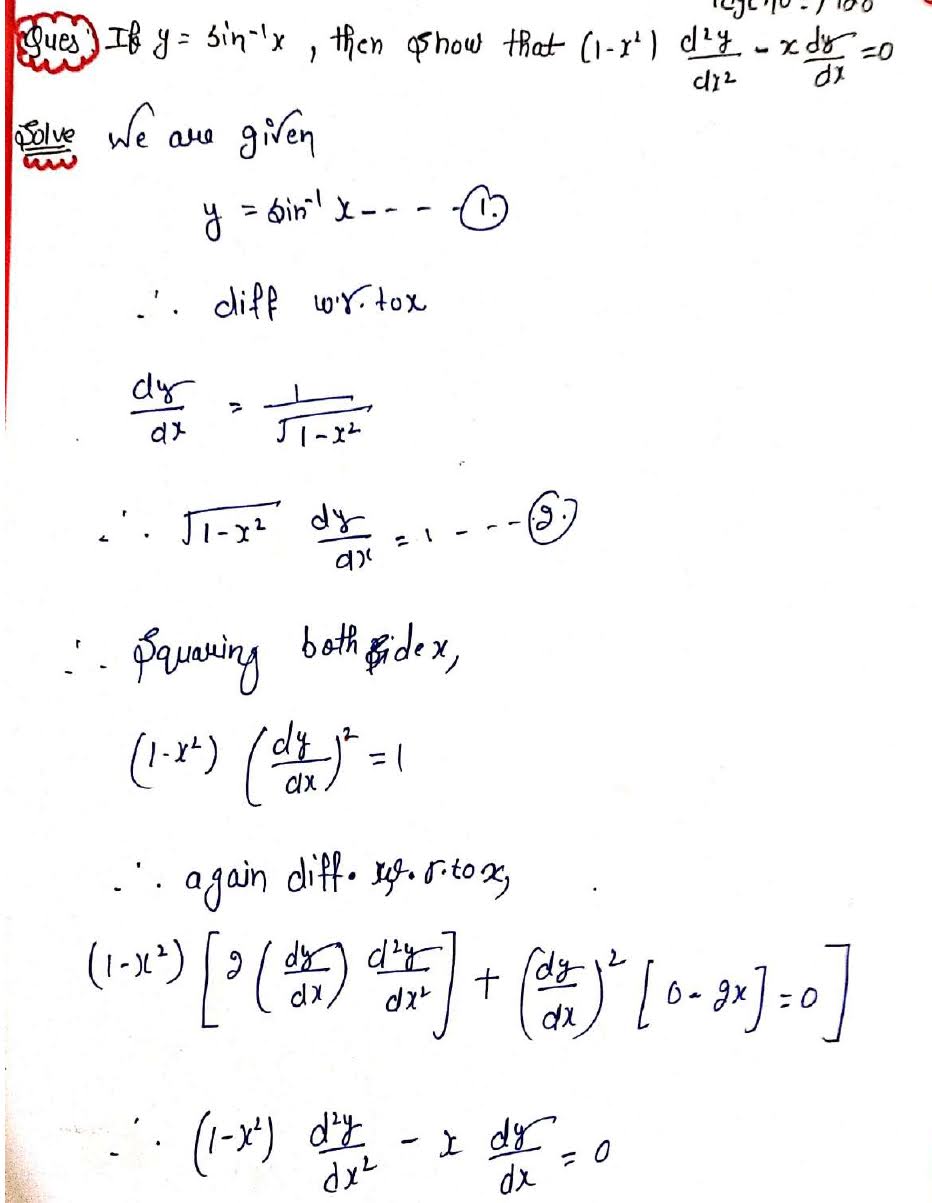 Ques) If y = sin⁻¹x, then show that (1-x²) d²y/dx² - x dy/dx = 0
Solve We are given
y = sin⁻¹ x ---- (1.)
∴ diff w.r.tox
dy/dx = 1/√(1-x²)
∴ √(1-x²) dy/dx = 1 ---- (2.)
∴ Squaring both sidex,
(1-x²) (dy/dx)² = 1
∴ again diff. w.r.tox,
(1-x²) [2 (dy/dx) d²y/dx²] + (dy/dx)² [0-2x] = 0]
∴ (1-x²) d²y/dx² - x dy/dx = 0